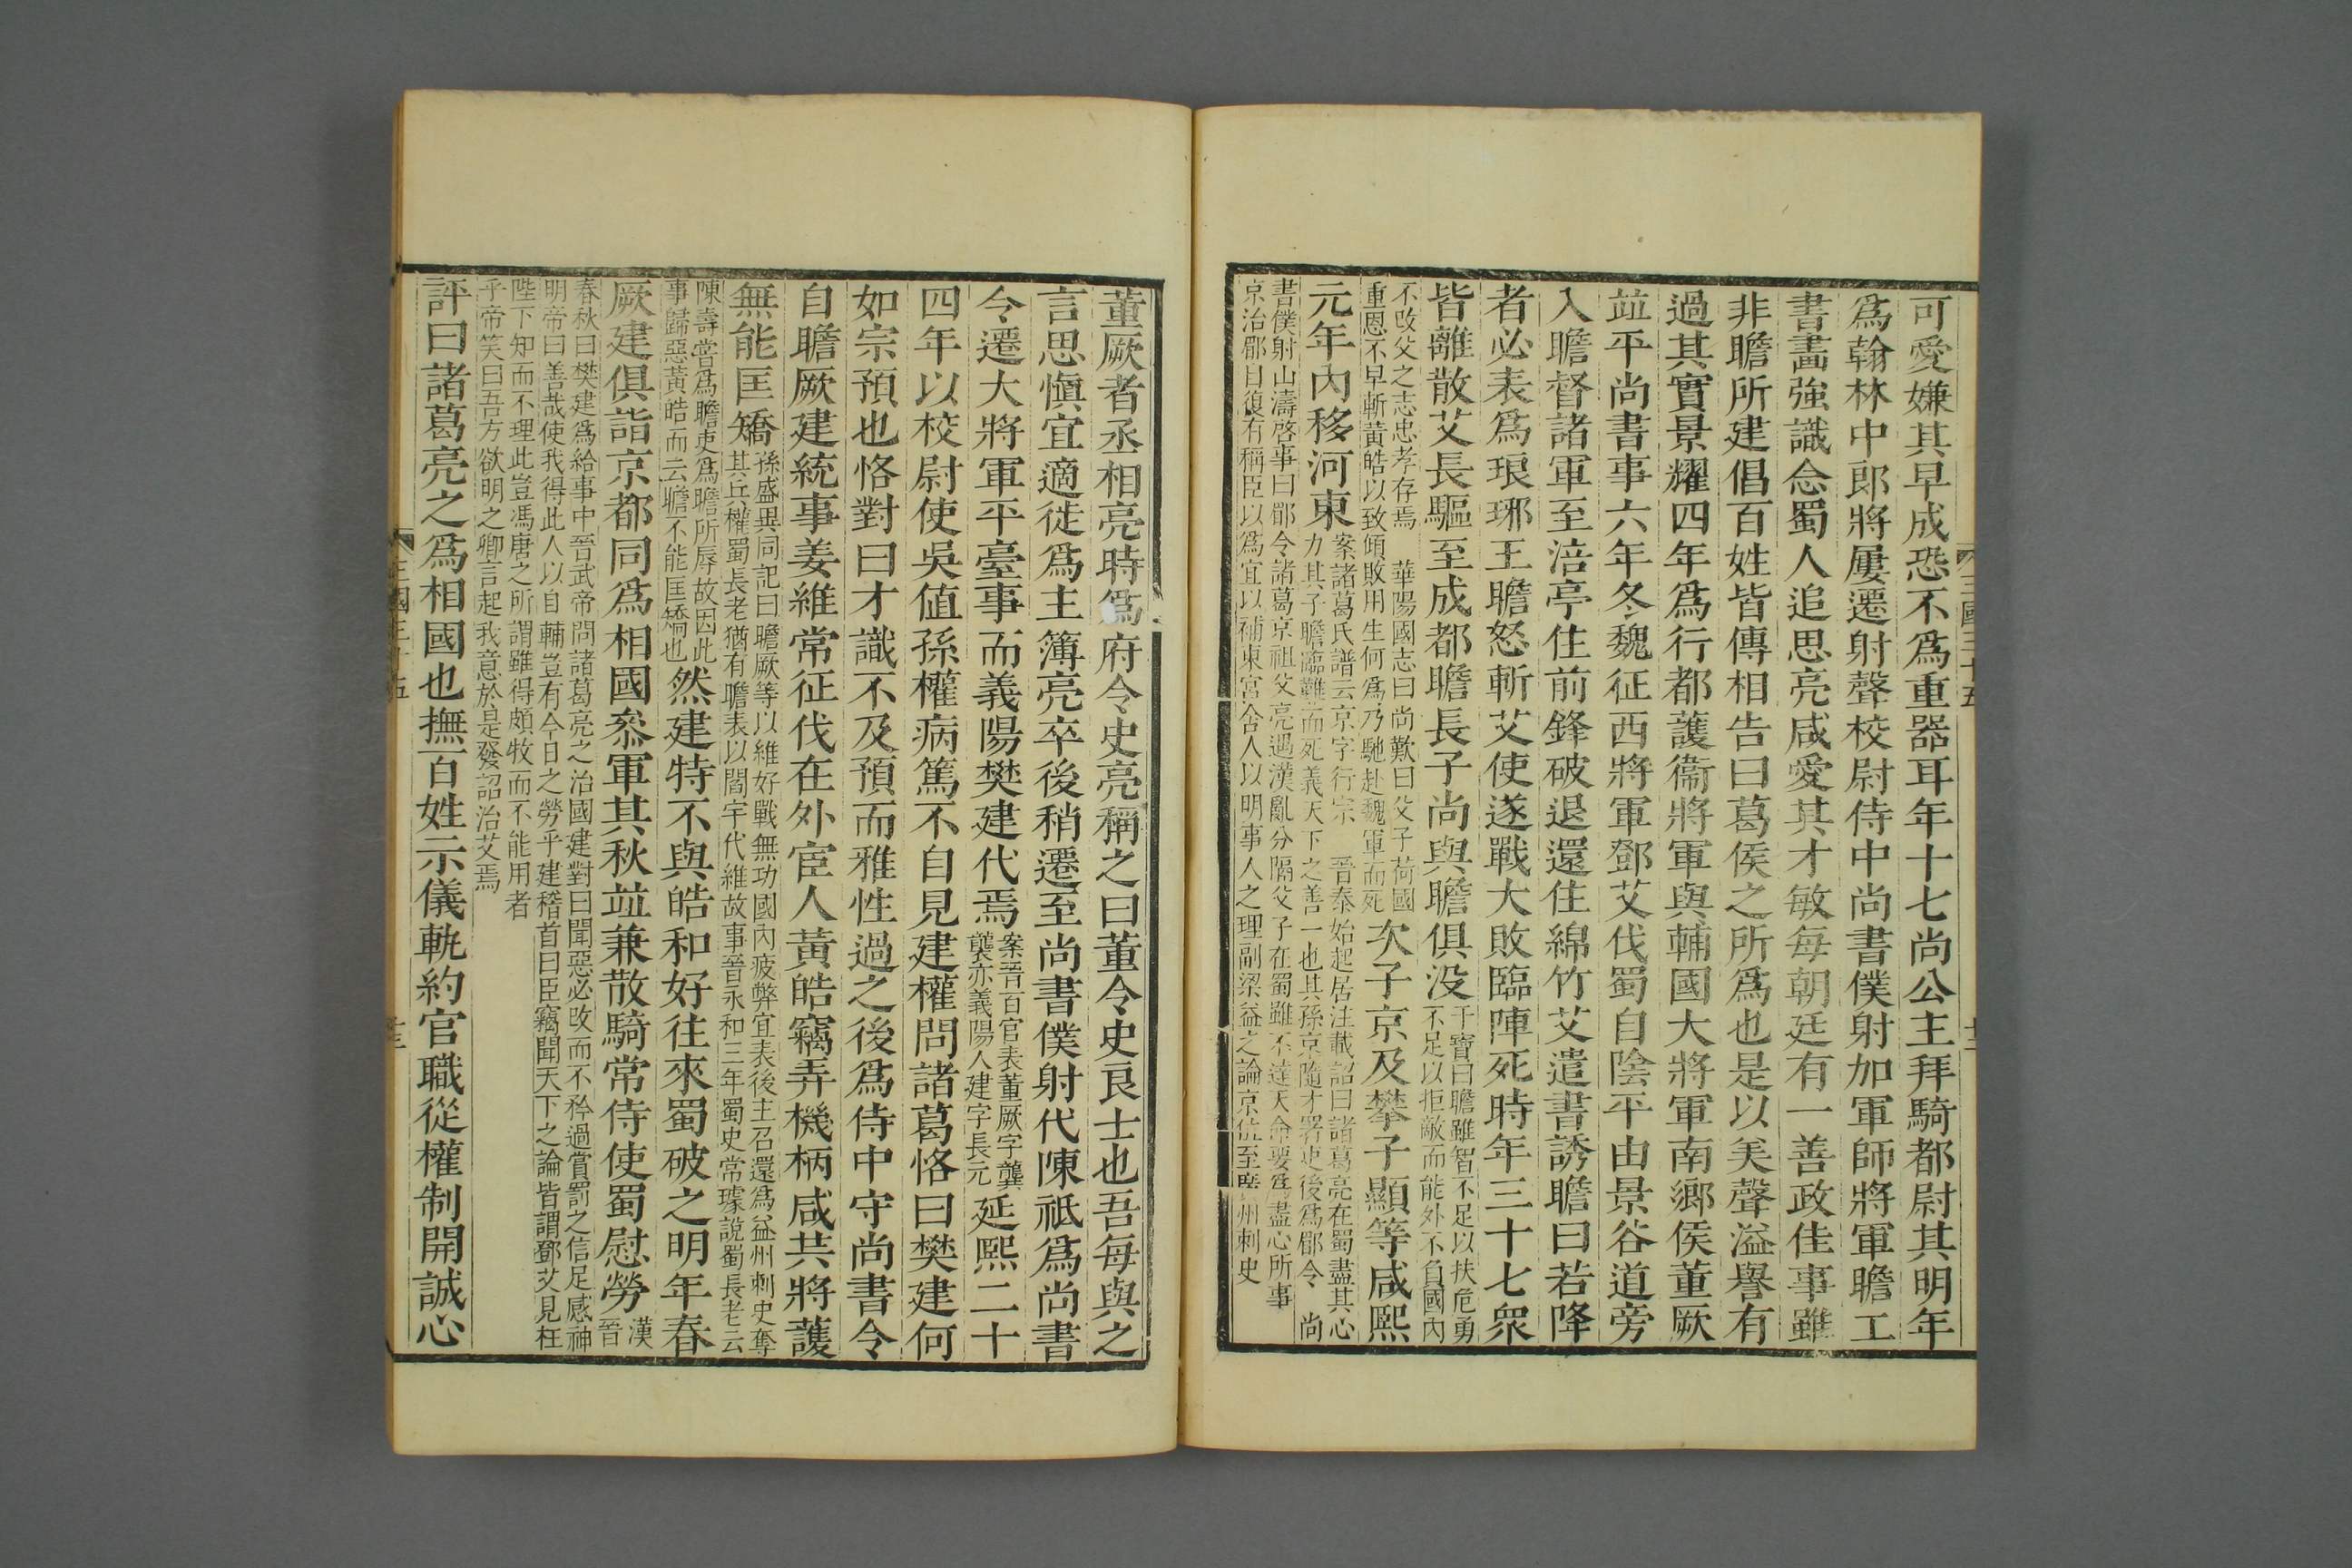 可愛嫌其早成恐不爲重器耳年十七尚公主拜騎都尉其明年
爲翰林中郎將屢遷射聲校尉侍中尚書僕射加軍師將軍瞻工
書畫強識念蜀人追思亮咸愛其才敏每朝廷有一善政佳事雖
非瞻所建倡百姓皆傳相告曰葛侯之所爲也是以美聲溢譽有
過其實景耀四年爲行都護衞將軍與輔國大將軍南鄉侯董厥
竝平尚書事六年冬魏征西將軍鄧艾伐蜀自陰平由景谷道旁
入瞻督諸軍至涪亭住前鋒破退還住綿竹艾遣書誘瞻曰若降
者必表爲琅琊王瞻怒斬艾使遂戰大敗臨陣死時年三十七衆
皆離散艾長驅至成都瞻長子尚與瞻俱没
干寶曰瞻雖智不足以扶危勇
不足以拒敵而能外不負國内
不改父之志忠孝存焉　華陽國志曰尚歎曰父子荷國
重恩不早斬黃皓以致傾敗用生何爲乃馳赴魏軍而死
次子京及攀子顯等咸熙
元年內移河東
案諸葛氏譜云京字行宗　晉泰始起居注載詔曰諸葛亮在蜀盡其心
力其子瞻臨難而死義天下之善一也其孫京隨才署吏後爲郿令　尚
書僕射山濤啓事曰郿令諸葛京祖父亮遇漢亂分隔父子在蜀雖不達天命要爲盡心所事
京治郿自復有稱臣以爲宜以補東宮舍人以明事人之理副梁益之論京位至廣州刺史
三國三十五
董厥者丞相亮時爲府令史亮稱之曰董令史良士也吾每與之
言思慎宜適徙爲主簿亮卒後稍遷至尚書僕射代陳祗爲尚書
令遷大將軍平臺事而義陽樊建代焉
案晉百官表董厥字龔
襲亦義陽人建字長元
延熙二十
四年以校尉使吳値孫權病篤不自見建權問諸葛恪曰樊建何
如宗預也恪對曰才識不及預而雅性過之後爲侍中守尚書令
自瞻厥建統事姜維常征伐在外宦人黃皓竊弄機柄咸共將護
無能匡矯
孫盛異同記曰瞻厥等以維好戰無功國內疲弊宜表後主召還爲益州刺史奪
其兵權蜀長老猶有瞻表以閻宇代維故事晉永和三年蜀史常璩說蜀長老云
陳壽嘗爲瞻吏爲瞻所辱故因此
事歸惡黃皓而云瞻不能匡矯也
然建特不與皓和好往來蜀破之明年春
厥建俱詣京都同爲相國叅軍其秋竝兼散騎常侍使蜀慰勞
漢
晉
春秋曰樊建爲給事中晉武帝問諸葛亮之治國建對曰聞惡必改而不矜過賞罰之信足感神
明帝曰善哉使我得此人以自輔豈有今日之勞乎建稽首曰臣竊聞天下之論皆謂鄧艾見枉
陛下知而不理此豈馮唐之所謂雖得頗牧而不能用者
乎帝笑曰吾方欲明之卿言起我意於是發詔治艾焉
評曰諸葛亮之爲相國也撫百姓示儀軌約官職從權制開誠心
三國三十五